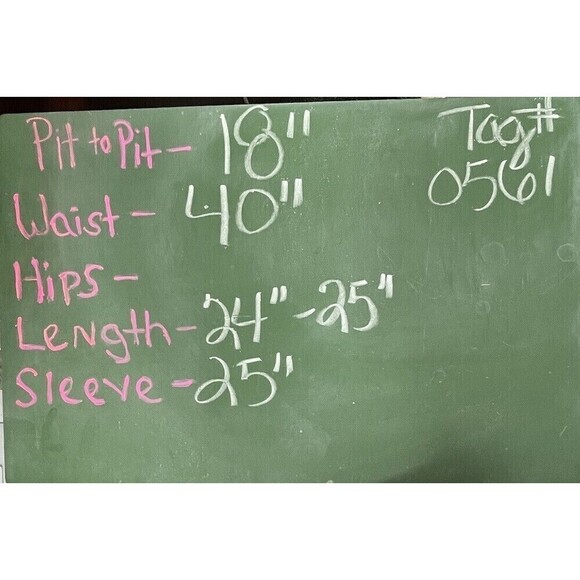 Pit to Pit - 18" Tag#
Waist - 40" 0561
Hips -
Length - 24" - 25"
Sleeve - 25"